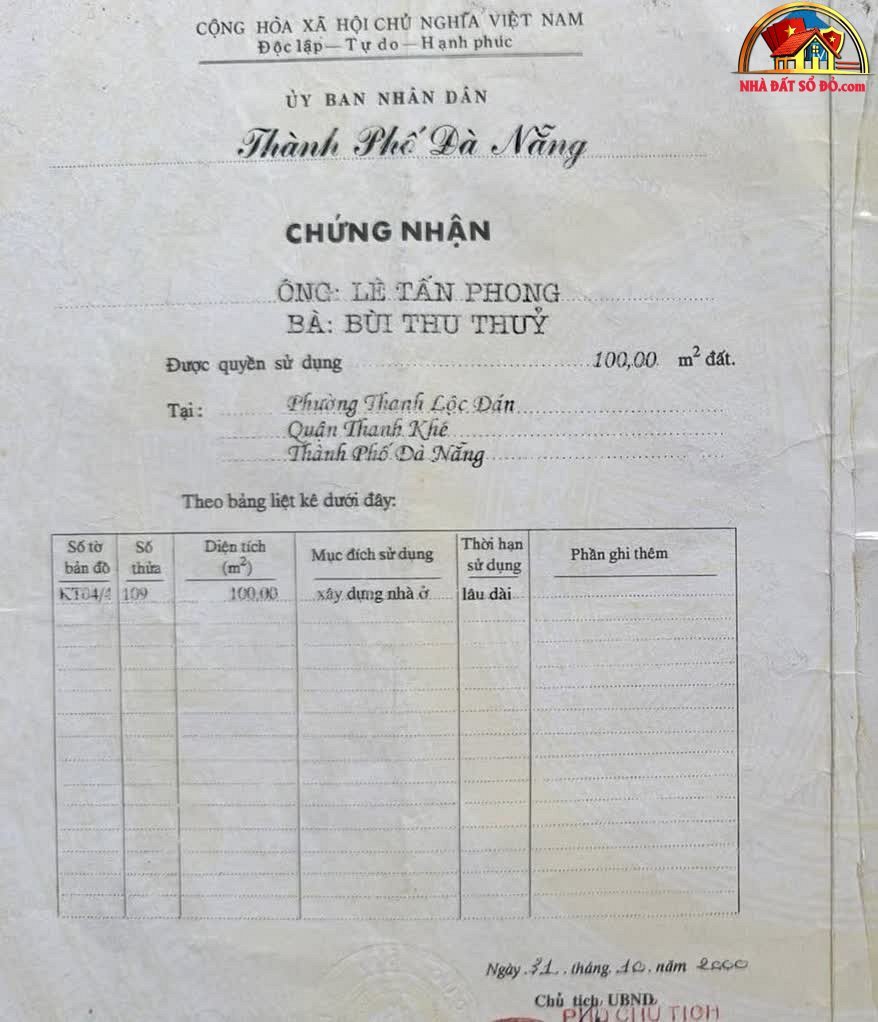 CỘNG HÒA XÃ HỘI CHỦ NGHĨA VIỆT NAM
Độc lập — Tự do — Hạnh phúc
NHÀ ĐẤT SỔ ĐỎ.com
ỦY BAN NHÂN DÂN
Thành Phố Đà Nẵng
CHỨNG NHẬN
ÔNG: LÊ TẤN PHONG
BÀ: BÙI THU THUỶ
Được quyền sử dụng 100,00 m² đất.
Tại: Phường Thanh Lộc Đán
Quận Thanh Khê
Thành Phố Đà Nẵng
Theo bảng liệt kê dưới đây:
Số tờ bản đồ Số thửa Diện tích (m²) Mục đích sử dụng Thời hạn sử dụng Phần ghi thêm
KT04/4 109 100,00 xây dựng nhà ở lâu dài
Ngày 31 tháng 10 năm 2000
Chủ tịch UBND
PHÓ CHỦ TỊCH